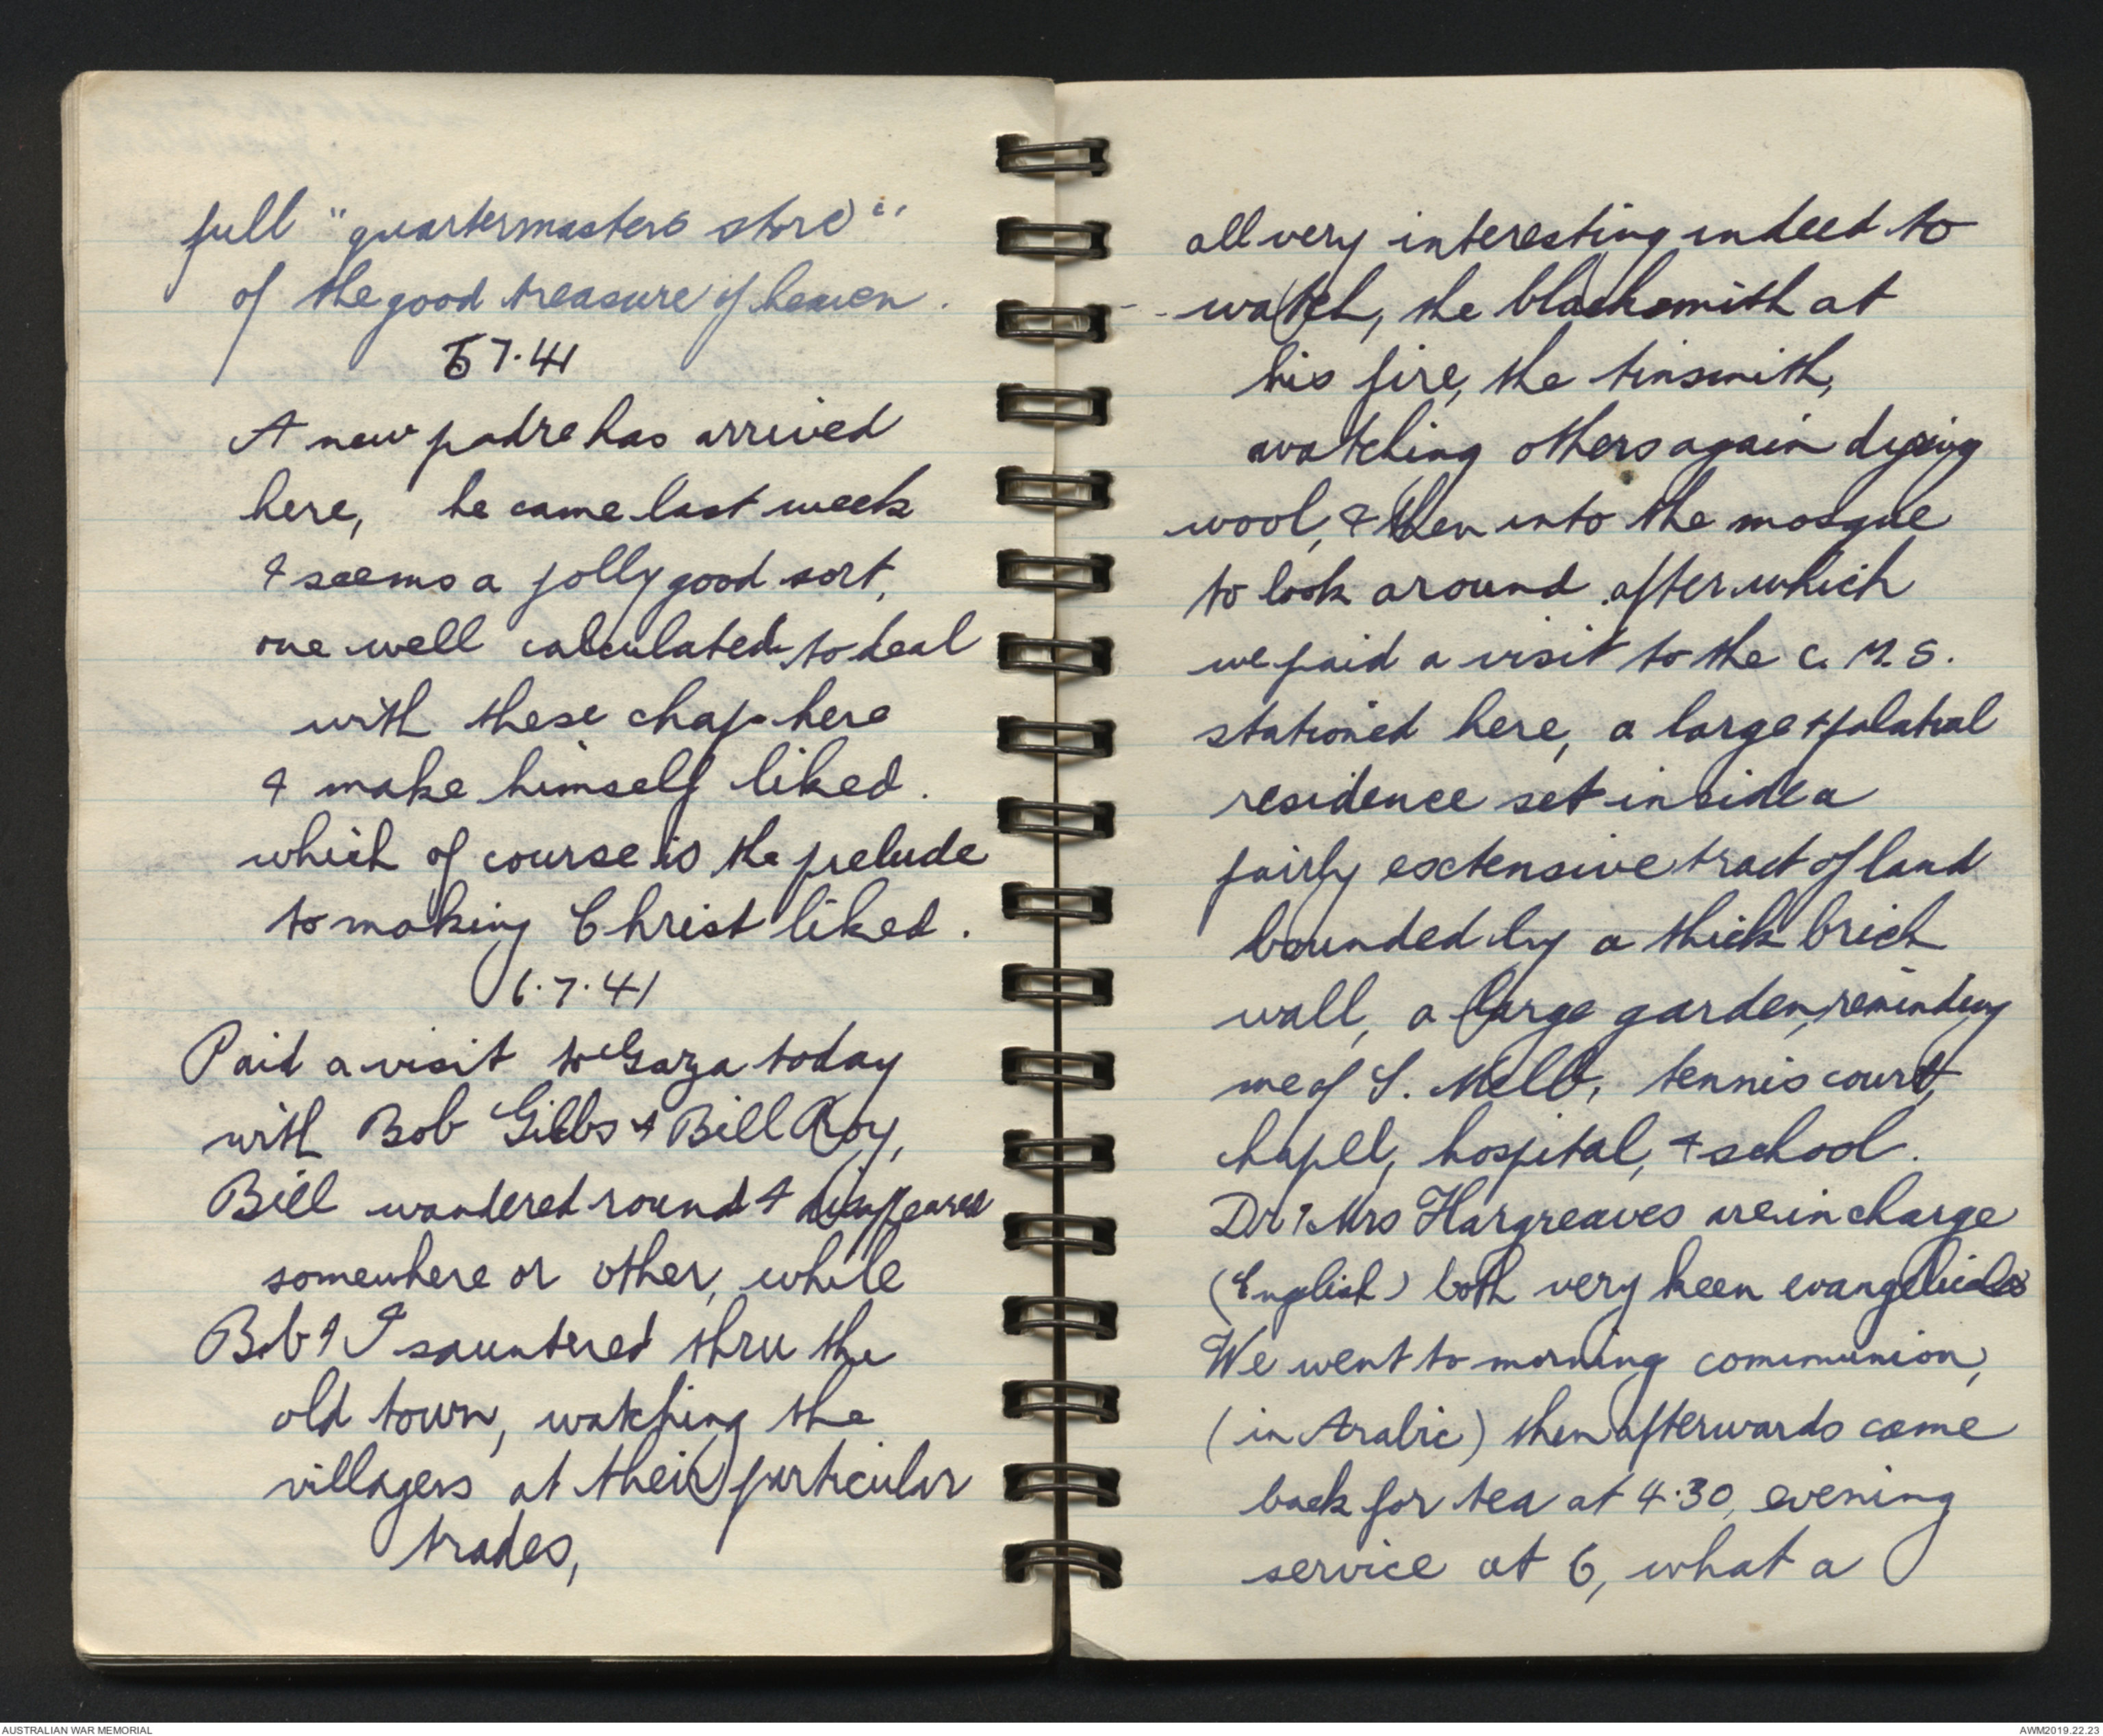 full "quartermasters store"
of the good treasure of heaven.
5 7.41
A new padre has arrived
here, he came last week
& seems a jolly good sort,
one well calculated to deal
with these chaps here
& make himself liked.
which of course is the prelude
to making Christ liked.
6.7.41
Paid a visit to Gaza today
with Bob Gibbs & Bill Roy,
Bill wandered round & disappeared
somewhere or other, while
Bob & I sauntered thru the
old town, watching the
villagers at their particular
trades,
all very interesting indeed to
watch, the blacksmith at
his fire, the tinsmith,
watching others again dyeing
wool, & then into the mosque
to look around after which
we paid a visit to the C.M.S.
stationed here, a large & palatial
residence set inside a
fairly exctensive tract of land
bounded by a thick brick
wall, a large garden, reminding
me of S. Melb, tennis court,
chapel, hospital, & school.
Dr & Mrs Hargreaves are in charge
(English) both very keen evangelicals
We went to morning communion,
(in Arabic) then afterwards came
back for tea at 4.30, evening
service at 6, what a
AUSTRALIAN WAR MEMORIAL
AWM2019.22.23